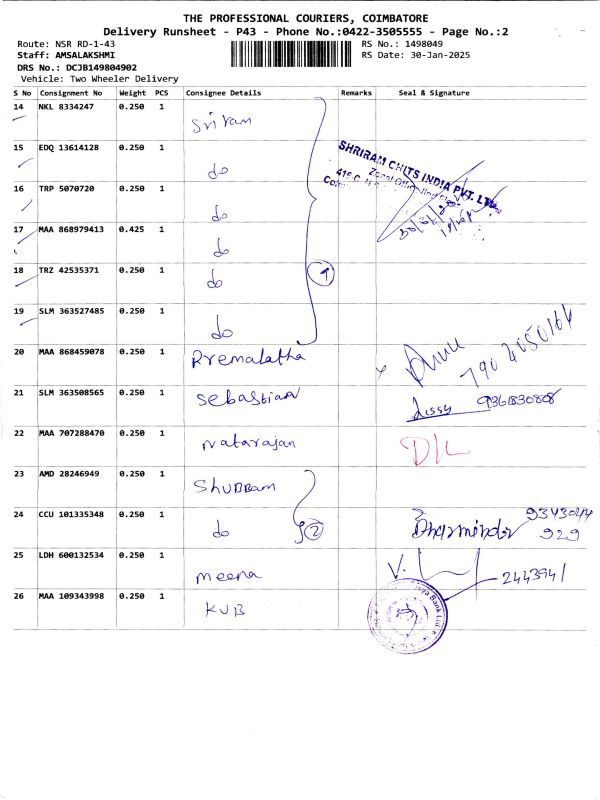 THE PROFESSIONAL COURIERS, COIMBATORE
Delivery Runsheet - P43 - Phone No.:0422-3505555 - Page No.:2
Route: NSR RD-1-43 RS No.: 1498049
Staff: AMSALAKSHMI RS Date: 30-Jan-2025
DRS No.: DCJB149804902
Vehicle: Two Wheeler Delivery
S No Consignment No Weight PCS Consignee Details Remarks Seal & Signature
14 NKL 8334247 0.250 1 Sriram
15 EDQ 13614128 0.250 1 do
SHRIRAM CHITS INDIA PVT. LTD.
Zonal Office
16 TRP 5070720 0.250 1 do
17 MAA 868979413 0.425 1 do
18 TRZ 42535371 0.250 1 do
19 SLM 363527485 0.250 1 do
20 MAA 868459078 0.250 1 Premalatha
21 SLM 363508565 0.250 1 Sebastian Lissy 9361830808
22 MAA 707288470 0.250 1 Natarajan D/L
23 AMD 28246949 0.250 1 Shubbam
24 CCU 101335348 0.250 1 do 2 Dharminder
929
25 LDH 600132534 0.250 1 meena V. 2443941
26 MAA 109343998 0.250 1 KVB